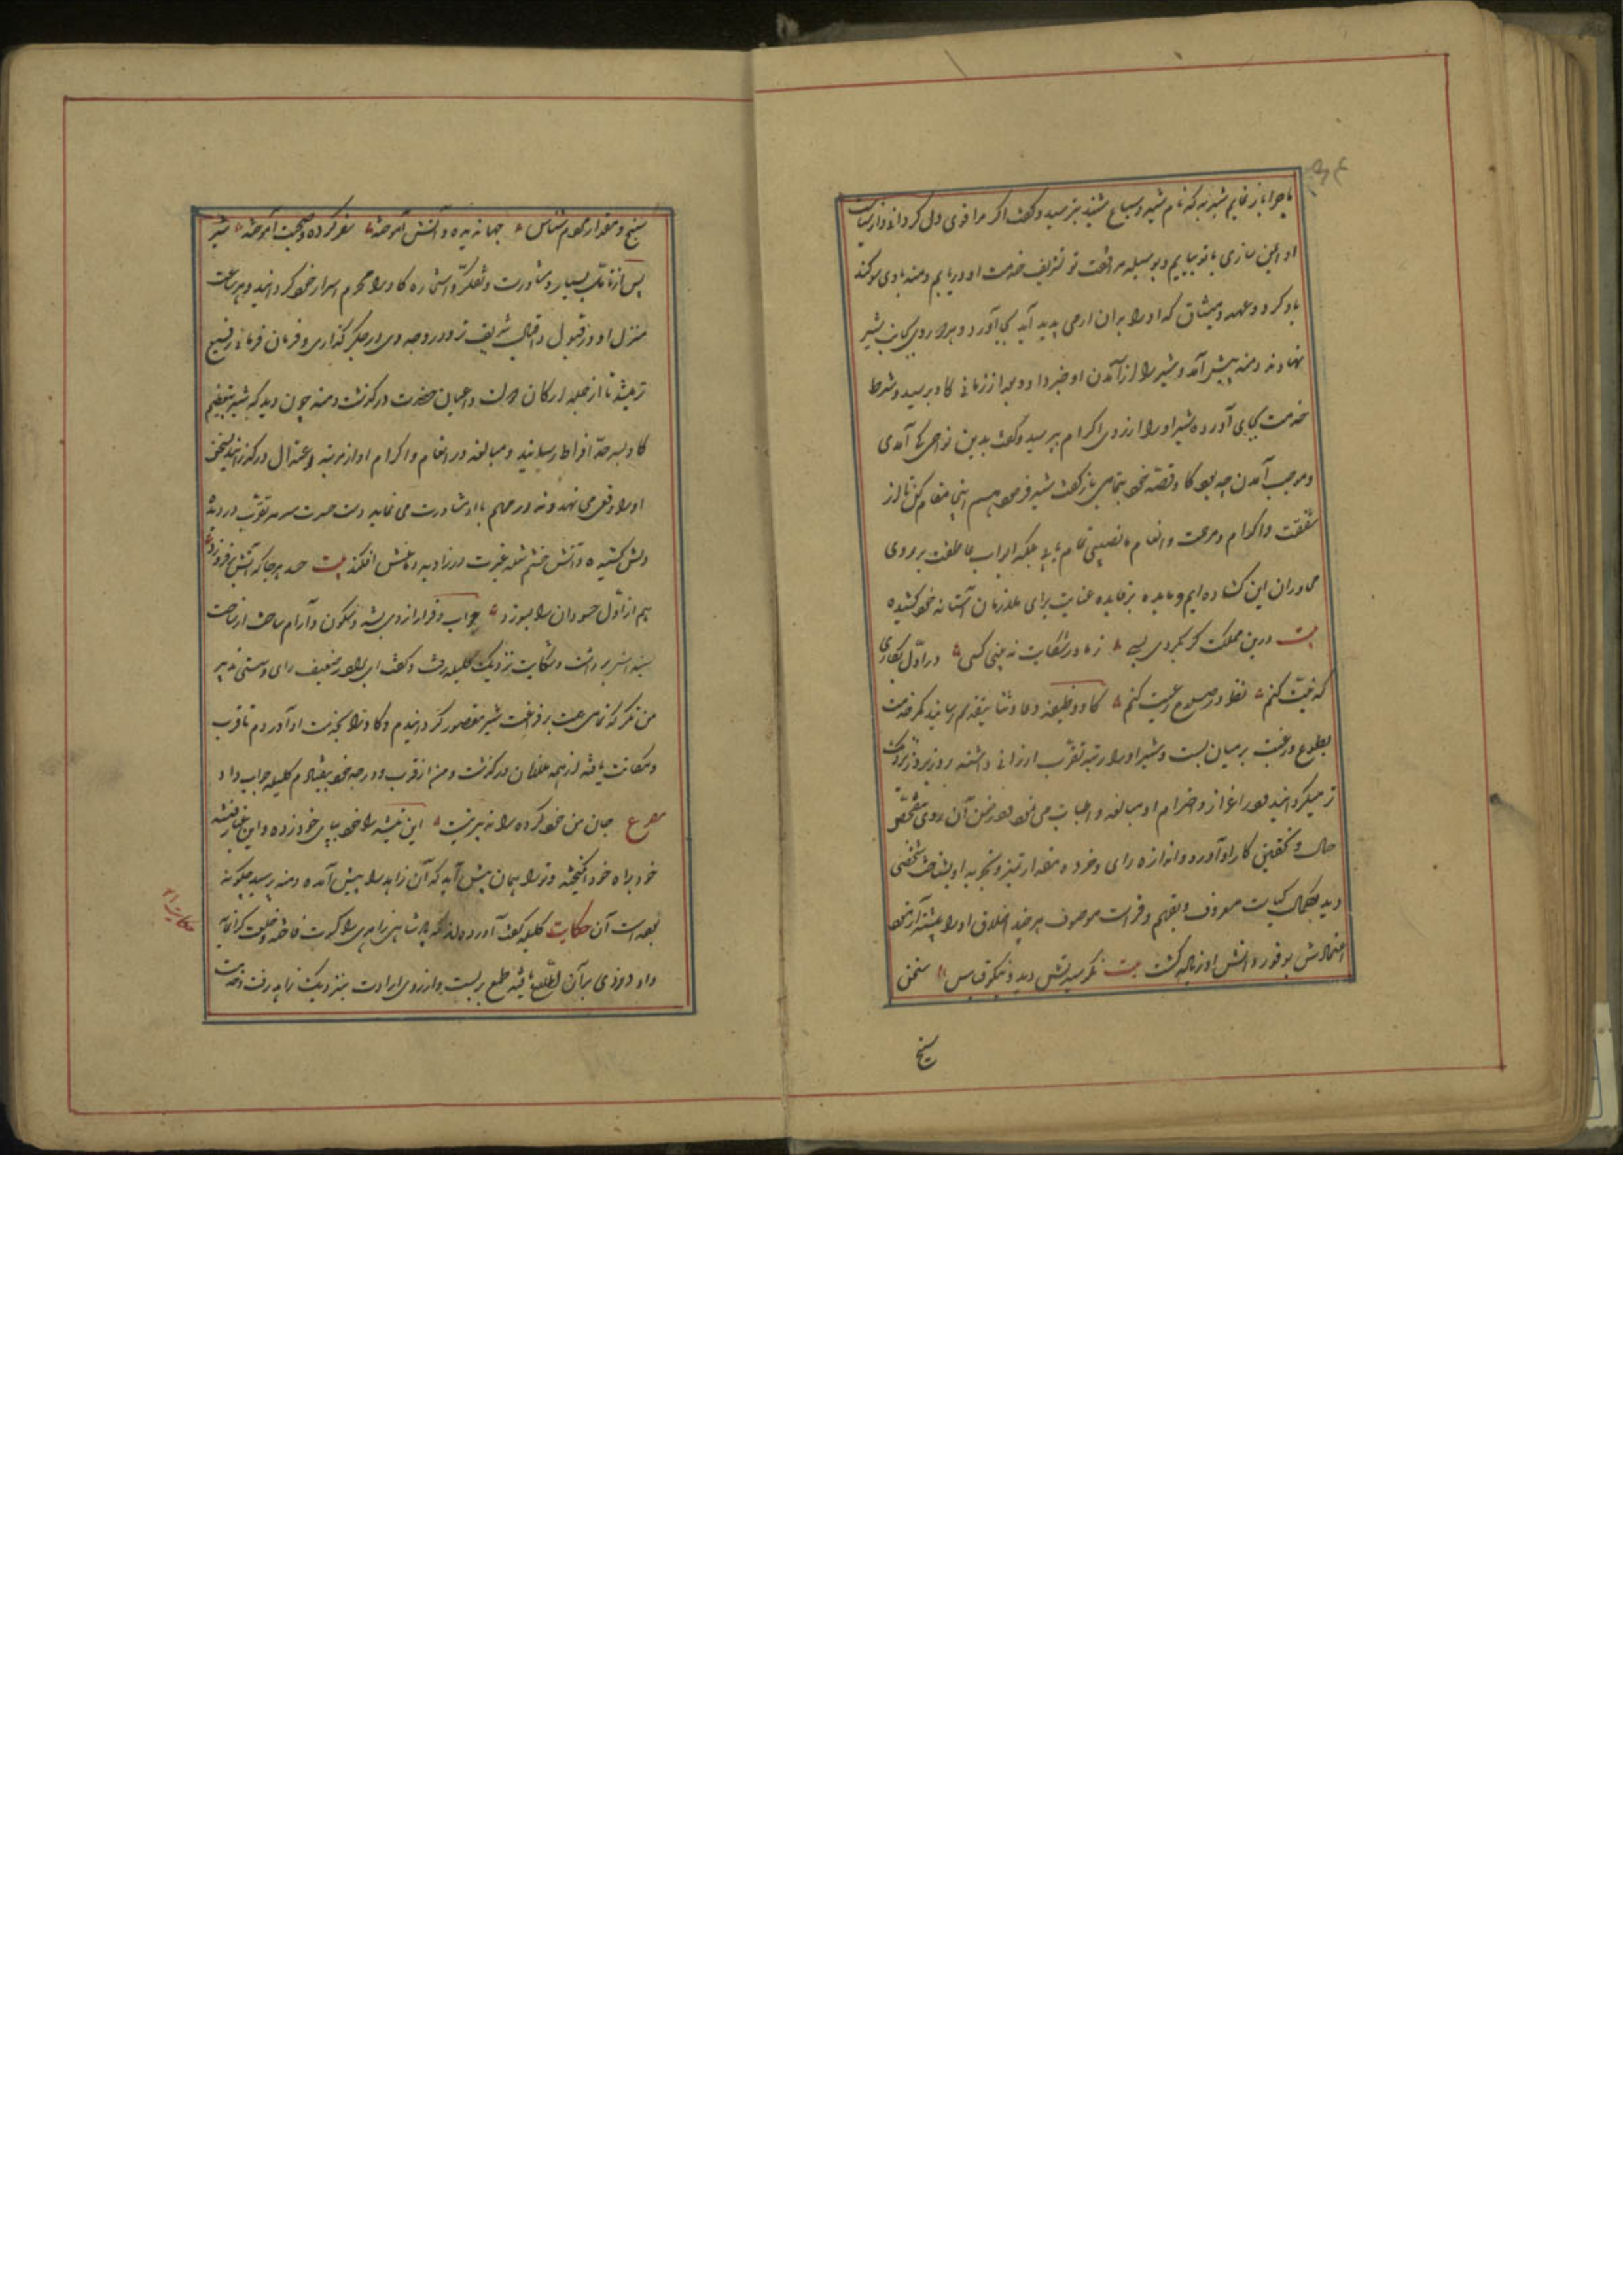 ماجرا باز نمایم شنزبه که نام شیر و سباع شنید بترسید و گفت اگر مرا قوی دل گردانی و از سیاست
او ایمن سازی با تو بیایم و بوسیله مرافقت تو شریف خدمت او دریابم دمنه با وی سوگند
یاد کرد و عهد و میثاق که او را بدان آرامی پدید آید بجای آورد و هر دو روی بجانب شیر
نهادند دمنه پیش آمد و شیر را از آمدن او خبر داد و بعد از زمانی گاو برسید و شرط
خدمت بجای آورد شیر او را از روی اکرام بپرسید و گفت بدین نواحی کی آمدی
و موجب آمدن چه بود گاو قصه خود بتمامی بازگفت شیر فرمود هم اینجا مقام کن تا از
شفقت و اکرام و مرحمت و انعام ما نصیبی تمام یابی که ابواب عاطفت بر روی
مجاوران این گشاده ایم و مایده پرفایده عنایت برای ملازمان آستانه خود کشیده
بیت درین مملکت گر بگردی بسی ز ما در شکایت نه بینی کسی در اول بکاری
که نیت کنم نظر در صلاح رعیت کنم گاو وظیفه دعا و ثنا بتقدیم رسانید کمر خدمت
بطوع و رغبت بر میان بست و شیر او را رتبه تقرب ارزانی داشته روز بروز نزدیک
تر میگردانید و در اعزاز و احترام او مبالغه و اطناب می نمود و در ضمن آن روی بتفحص
حال و تحقیق کار او آورد و اندازه رای و خرد و مقدار تمیز و تجربه او بشناخت شخصی
دید بکمال کیاست معروف و بفهم و فراست موصوف هر چند اخلاق او را بیشتر آزمود
اعتمادش بوفور دانش او زیاده گشت بیت نکو سیرتش دید و نیکو قیاس سخن
سنج
سنج و مقدار مردم شناس جهاندیده و دانش آموخته سفر کرده و صحبت آموخته شیر
پس از تامل بسیار و مشاورت و تفکر و استخاره گاو را محرم اسرار خود گردانید و هر ساعت
منزل او در قبول و اقبال شریف تر و درجه وی در حکم گذاری و فرمان فرمایی رفیع
تر میشد تا از جمله ارکان دولت و اعیان حضرت درگذشت دمنه چون دید که شیر بتعظیم
گاو بسرحد افراط رسانید و مبالغه در انعام و اکرام او از مرتبه اعتدال درگذرانید نه سخن
او را وقعی می نهد و نه در مهم با او مشاورت می نماید دست حسرت سرمه تقرب در دیده
دلش کشیده و آتش خشم شعله غیرت در زاویه دماغش افکند بیت حسد هر جا که آتش برفروزد
هم از اول حسودان را بسوزد خواب و قرار از وی بشد و سکون و آرام ساحت از ساحت
سینه اش برداشت و شکایت نزدیک کلیله رفت و گفت ای برادر ضعیف رای و سستی تدبیر
من نگر که تمامی همت بر فراغت شیر مقصور گردانیدم و گاو را بخدمت او آوردم تا قرب
و مکانت یافته از همه ملازمان درگذشت و من از قرب و درجه خود بیفتادم کلیله جواب داد
مصرع جان من خود کرده را تدبیر نیست این تیشه را خود بپای خود زده و این غبار فتنه
خود براه خود انگیخته و ترا همان پیش آید که آن زاهد را پیش آمده دمنه پرسید چگونه
بوده است آن حکایت کلیله گفت آورده اند که پادشاهی زاهدی را کسوت فاخر و خلعت گرانمایه
داد دزدی بر آن اطلاع یافته طمع بربست و از روی ارادت بنزدیک زاهد رفت و خدمت
حکایت